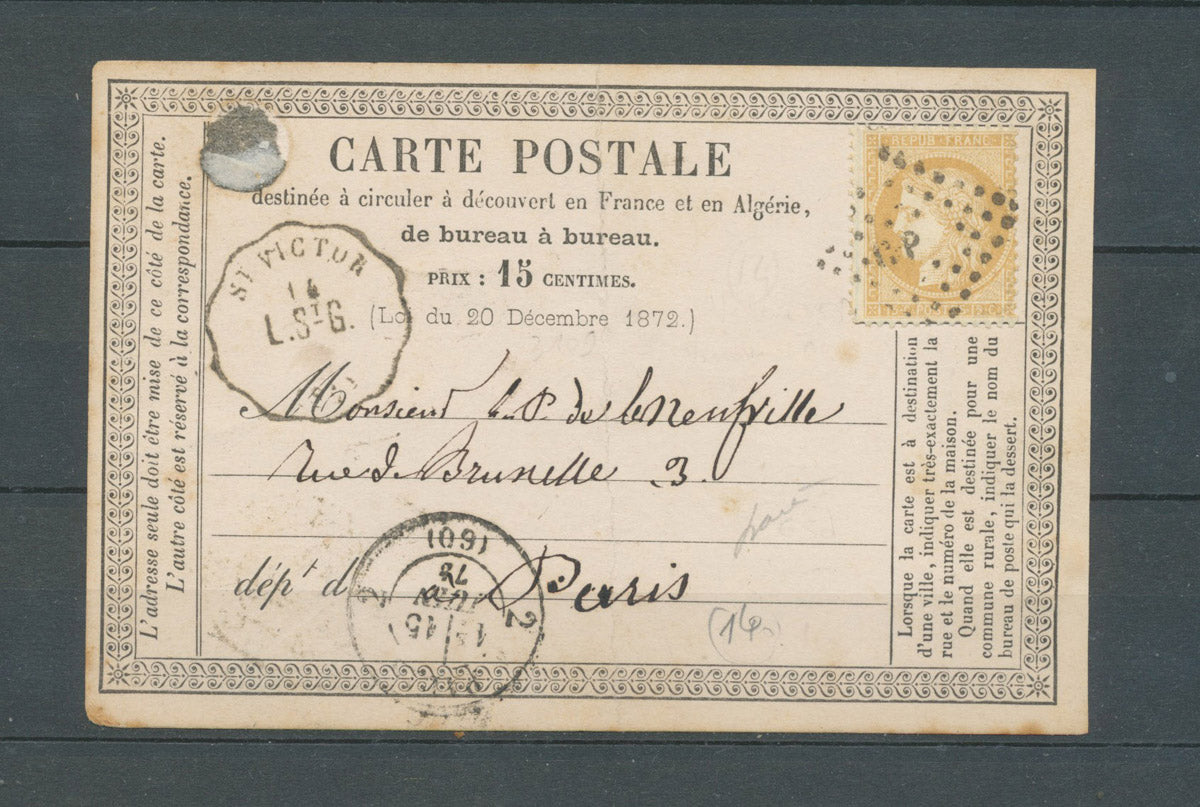 L'adresse seule doit être mise de ce côté de la carte.
L'autre côté est réservé à la correspondance.
CARTE POSTALE
destinée à circuler à découvert en France et en Algérie,
de bureau à bureau.
PRIX : 15 CENTIMES.
(Loi du 20 Décembre 1872.)
REPUB · FRANC ·
15 C POSTES 15 C
ST VICTOR
14
L. ST G.
Monsieur de
rue de Brunelle 3.
dép t d Paris
(60)
JUIN
2
(14)
Lorsque la carte est à destination
d'une ville, indiquer très-exactement la
rue et le numéro de la maison.
Quand elle est destinée pour une
commune rurale, indiquer le nom du
bureau de poste qui la dessert.